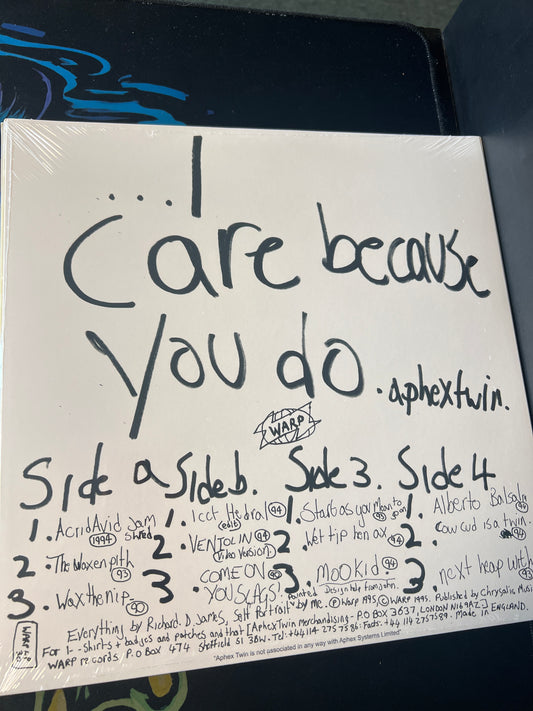 ...I
Care because
You do.
.aphextwin.
WARP
Side a
1. Acrid Avid Jam Shred 1994
2. The Waxen pith 93
3. Wax the nip 90
Side b.
1. Icct Hedral (edit) 94
2. VENTOLIN (Video Version) 94
3. COME ON YOU SLAGS! 90
Side 3.
1. Start as you Mean to go on 93
2. Wet tip hen ax 94
3. MOOKid 94
Side 4
1. Alberto Balsalm 94
2. Cow cud is a twin. 94
3. next heap with 93
Everything by Richard. D. James, Self Portrait painted by me. Design help from john. ℗ Warp 1995 © WARP 1995. Published by Chrysalis Musi
For T-Shirts + badges and patches and that [AphexTwin Merchandising - P.O BOX 3637, LONDON N16 9AZ]
WARP records. P.O BOX 474 Sheffield S1 3BW. Tel: +44 114 275 7586. Facts: +44 114 2757589. Made in ENGLAND.
"Aphex Twin is not associated in any way with Aphex Systems Limited"